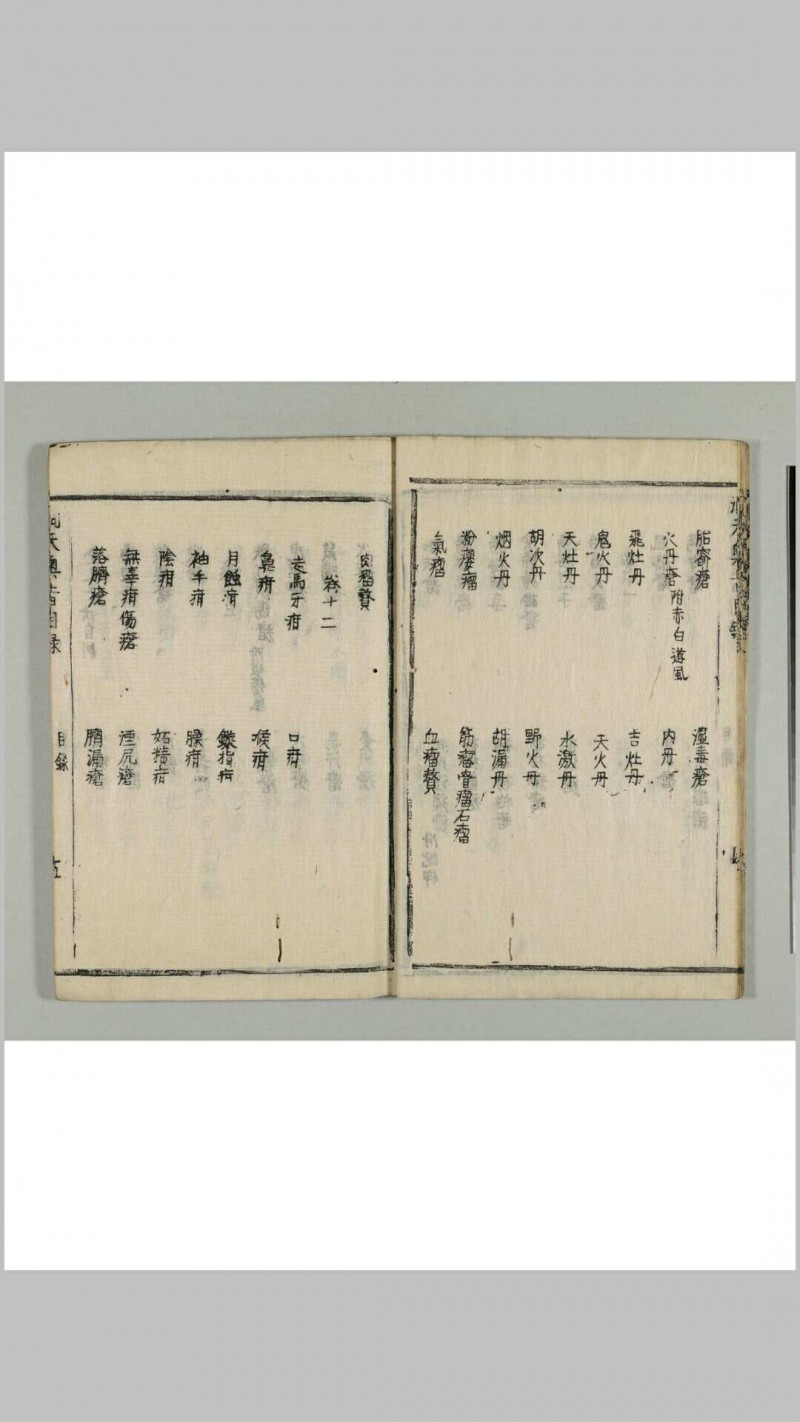 脂窬瘡　濕毒瘡
火丹瘡附赤白遊風　內丹
飛灶丹　吉灶丹
鬼火丹　天火丹
天灶丹　水激丹
胡次丹　野火丹
烟火丹　胡漏丹
粉瘿瘤　筋瘤骨瘤石瘤
氣瘤　血瘤贅
肉瘤贅
卷十二
走馬牙疳　口疳
鼻疳　喉疳
月蝕疳　指疳
袖手疳　臊疳
陰疳　妬精疳
無辜疳傷瘡　湮尻瘡
落臍瘡　瘡
洞天奧旨目錄　目錄